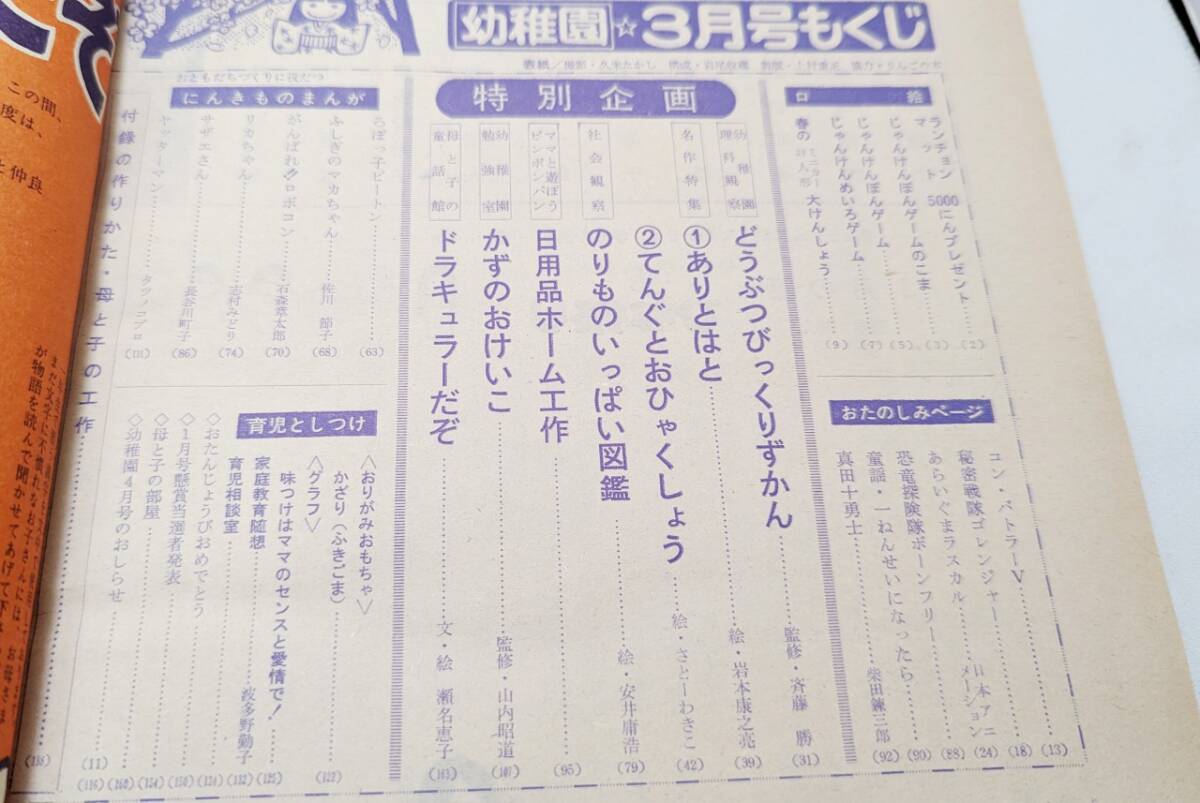 幼稚園☆3月号もくじ
口絵
ランチョンマット 5000にんプレゼント (2)
じゃんけんぽんゲームのこま (3)
じゃんけんぽんゲーム (5)
じゃんけんめいろゲーム (7)
春の 大けんしょう (9)
おたのしみページ
コン・バトラーV (13)
秘密戦隊ゴレンジャー (18)
あらいぐまラスカル 日本アニメーション (24)
恐竜探険隊ボーンフリー (88)
童謡・一ねんせいになったら (90)
真田十勇士 柴田錬三郎 (92)
特別企画
幼稚園理科観察 どうぶつびっくりずかん 監修・斉藤 勝 (31)
名作特集 ①ありとはと 絵・岩本康之亮 (39)
②てんぐとおひゃくしょう 絵・さとーわきこ (42)
社会観察 のりものいっぱい図鑑 絵・安井庸浩 (79)
ママと遊ぼうピンポンパン 日用品ホーム工作 (95)
幼稚園勉強室 かずのおけいこ 監修・山内昭道 (107)
母と子の童話館 ドラキュラーだぞ 文・絵 瀬名恵子 (163)
おともだちづくりに役だつ
にんきものまんが
ろぼっ子ビートン (63)
ふしぎのマカちゃん 佐川 節子 (68)
がんばれ!!ロボコン 石森章太郎 (70)
リカちゃん 志村みどり (74)
サザエさん 長谷川町子 (86)
ヤッターマン タツノコプロ (111)
育児としつけ
〈おりがみおもちゃ〉
かざり(ふきごま) (122)
〈グラフ〉
味つけはママのセンスと愛情で! (125)
家庭教育随想 波多野勤子 (132)
育児相談室
◇おたんじょうびおめでとう
◇1月号懸賞当選者発表
◇母と子の部屋
◇幼稚園4月号のおしらせ
付録の作りかた・母と子の工作
この間、
度は、
と仲良
また文字に不慣れなお子さんには、お母さま
が物語を読んで聞かせてあげて下さ